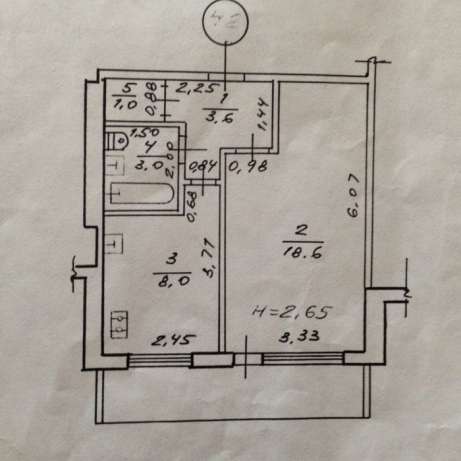 5
1,0
0,88
2,25
1
3,6
1,44
1,50
4
3.0
2,00
0,84
0,98
0,68
3
8,0
3,77
2
18.6
6,07
H=2,65
2,45
3,33